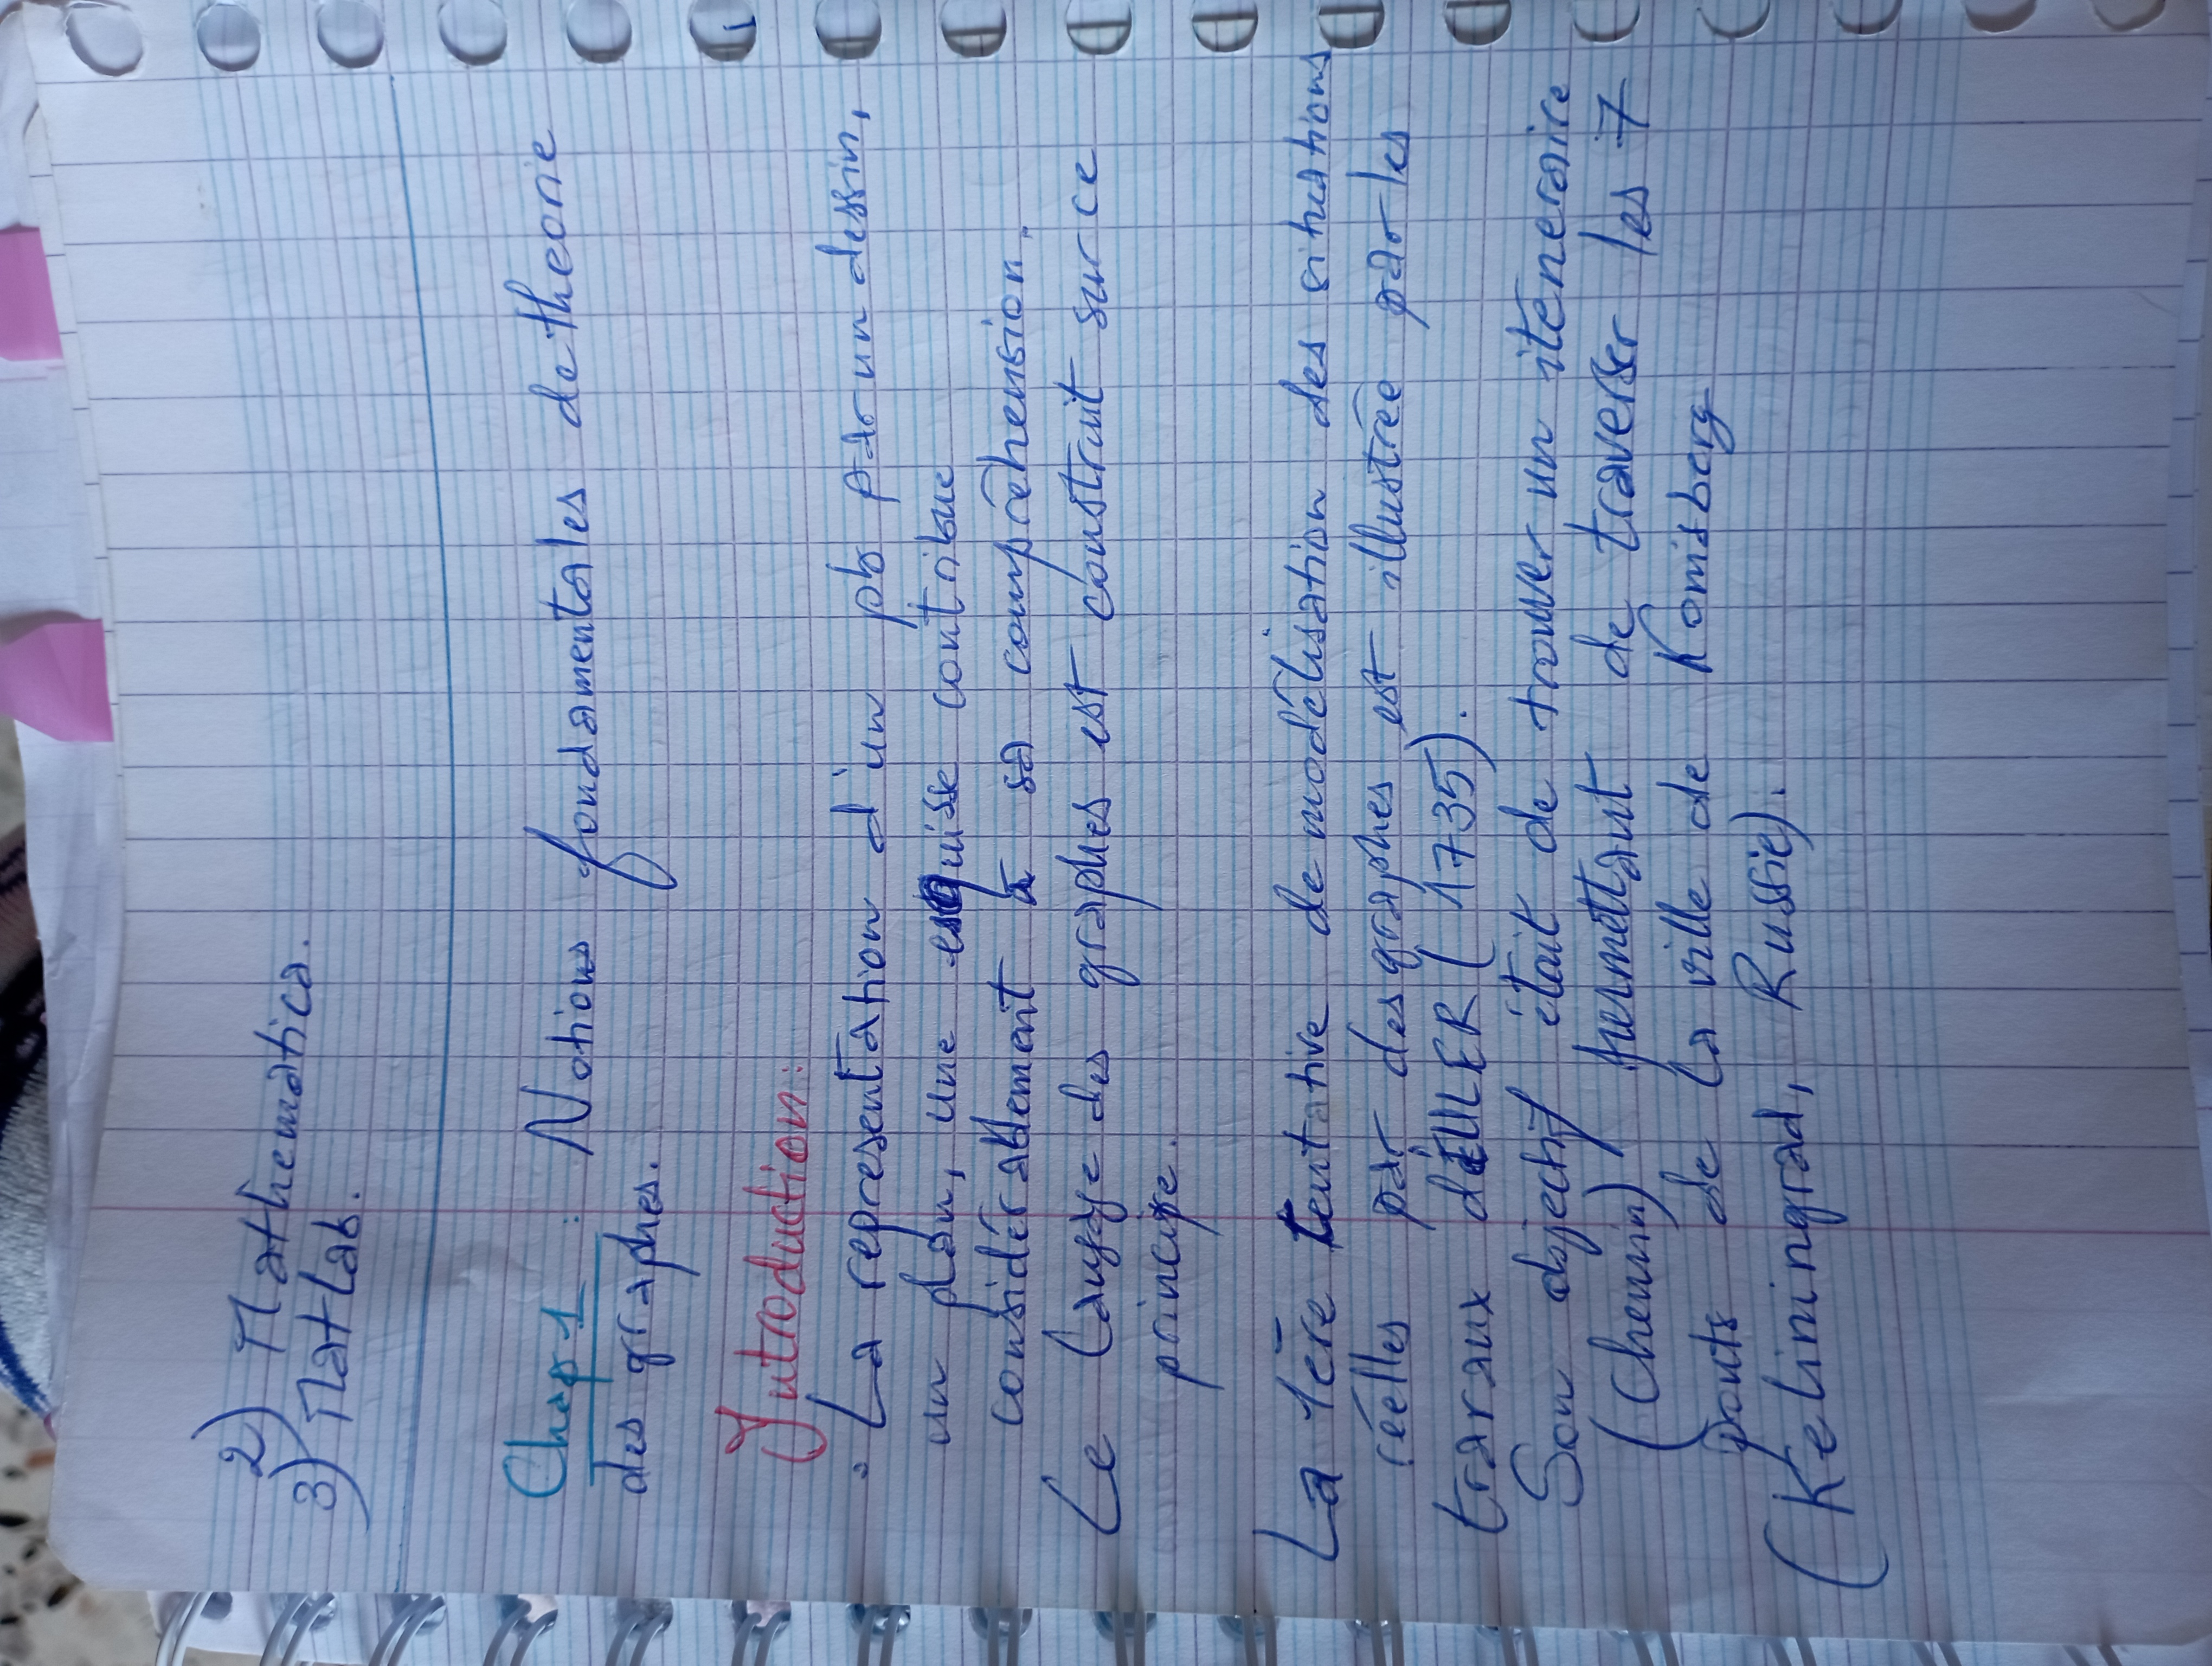 2) Mathematica.
3) Matlab.
Chap 1 : Notions fondamentales de theorie
des graphes.
Introduction:
. La representation d'un pb par un dessin,
un plan, une esquisse contribue
considérablement à sa compréhension.
Le langage des graphes est construit sur ce
principe.
La 1ère tentative de modélisation des situations
réelles par des graphes est illustrée par les
travaux d'EULER (1735).
Son objectif était de trouver un iteneraire
(Chemin) permettant de traverser les 7
ponts de la ville de Konisberg
(Keliningrad, Russie).